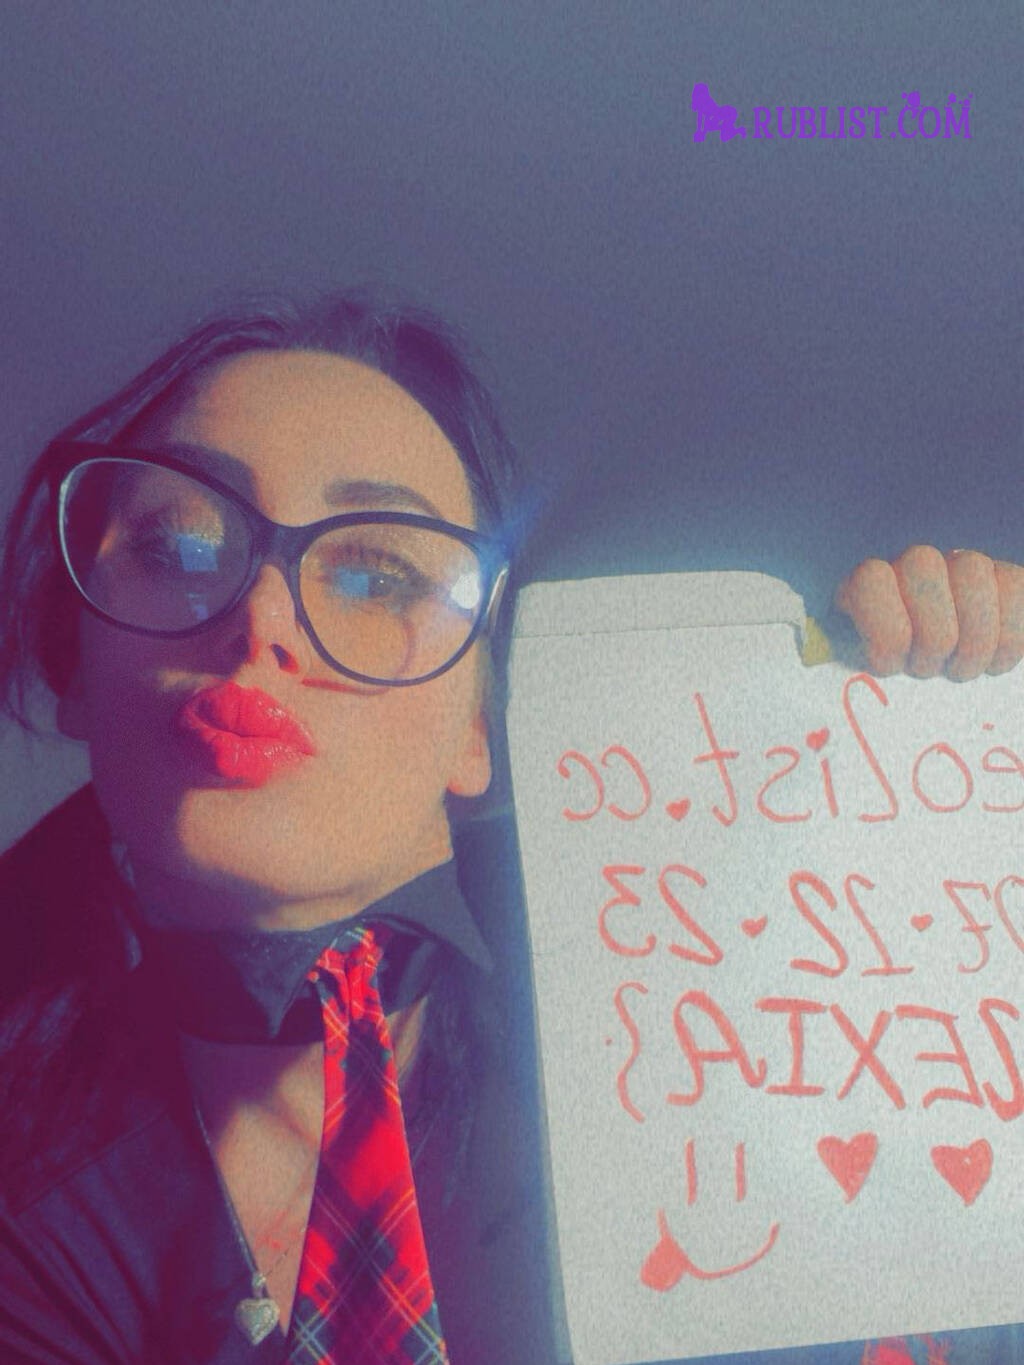 RUBLIST.COM
eolist.cc
07.12.23
LEXIA}